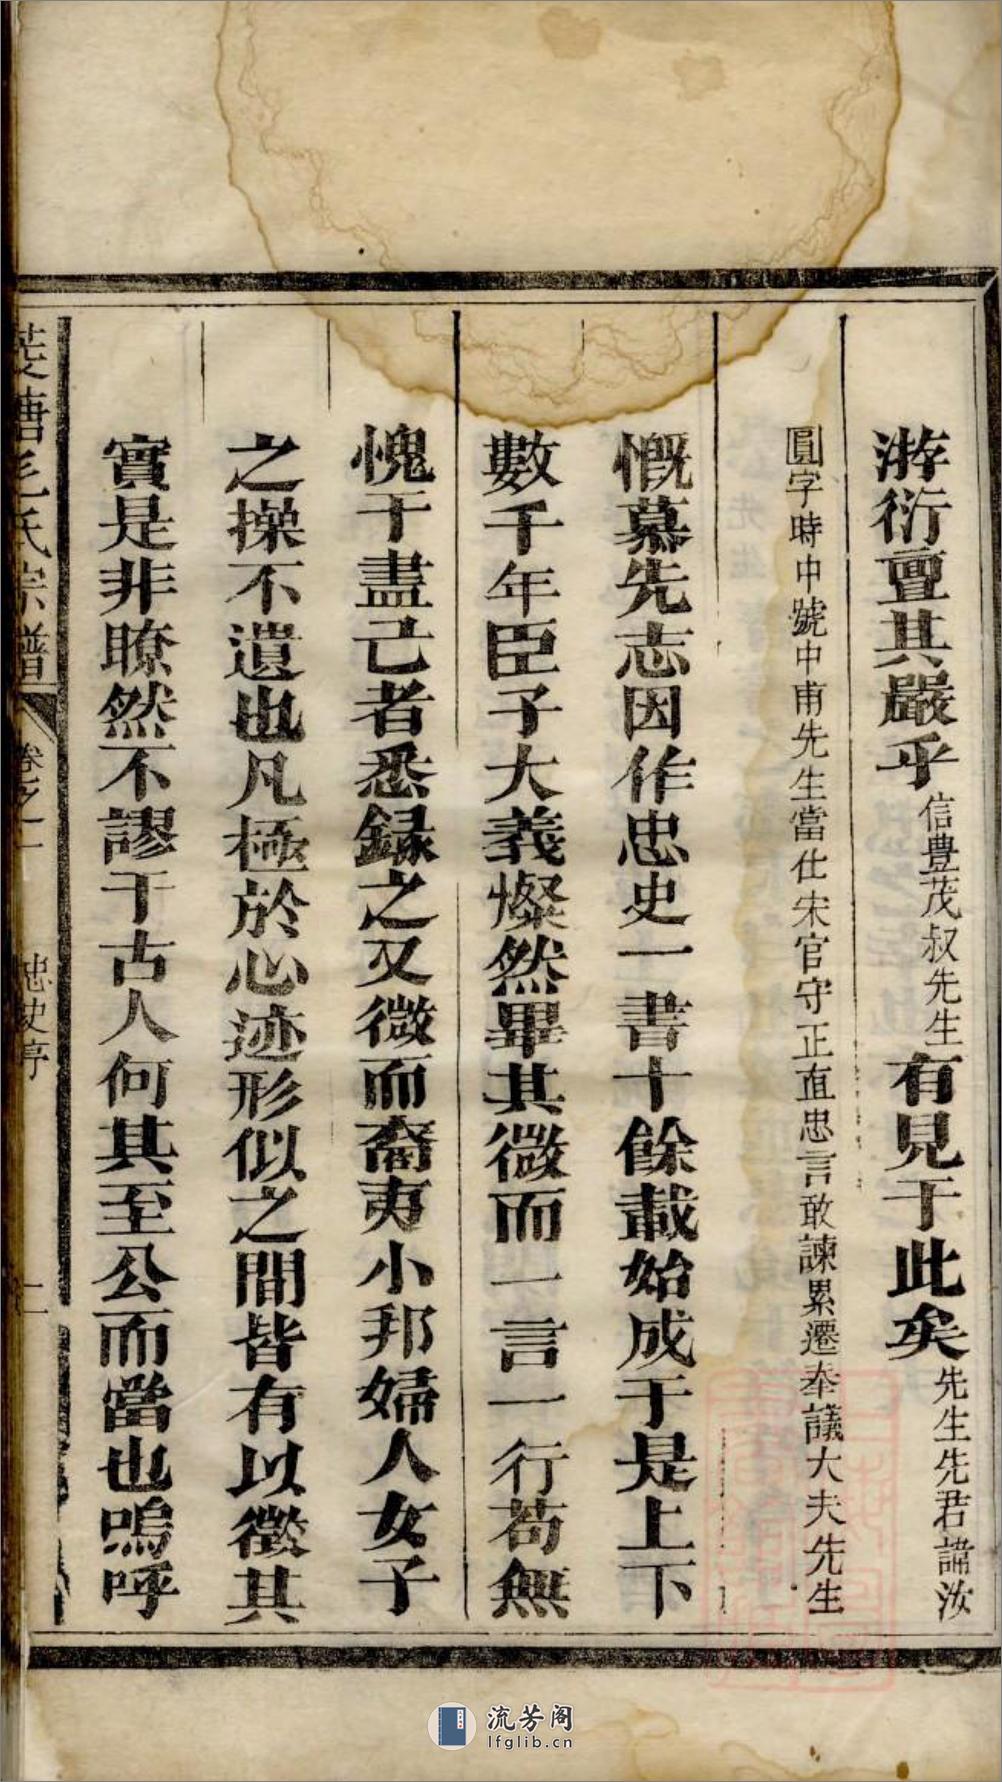 游衍亶其嚴乎信豊茂叔先生有見于此矣先生先君諱汝
圓字時中號中甫先生當仕宋官守正直忠言敢諫累遷奉議大夫先生
慨慕先志因作忠史一書十餘載始成于是上下
數千年臣子大義燦然畢其微而一言一行苟無
愧于盡己者悉錄之又微而裔夷小邦婦人女子
之操不遺也凡極於心迹形似之間皆有以徵其
實是非瞭然不謬于古人何其至公而當也嗚呼
塘毛氏宗譜 卷之一 忠史序 二
流芳阁
lfglib.cn